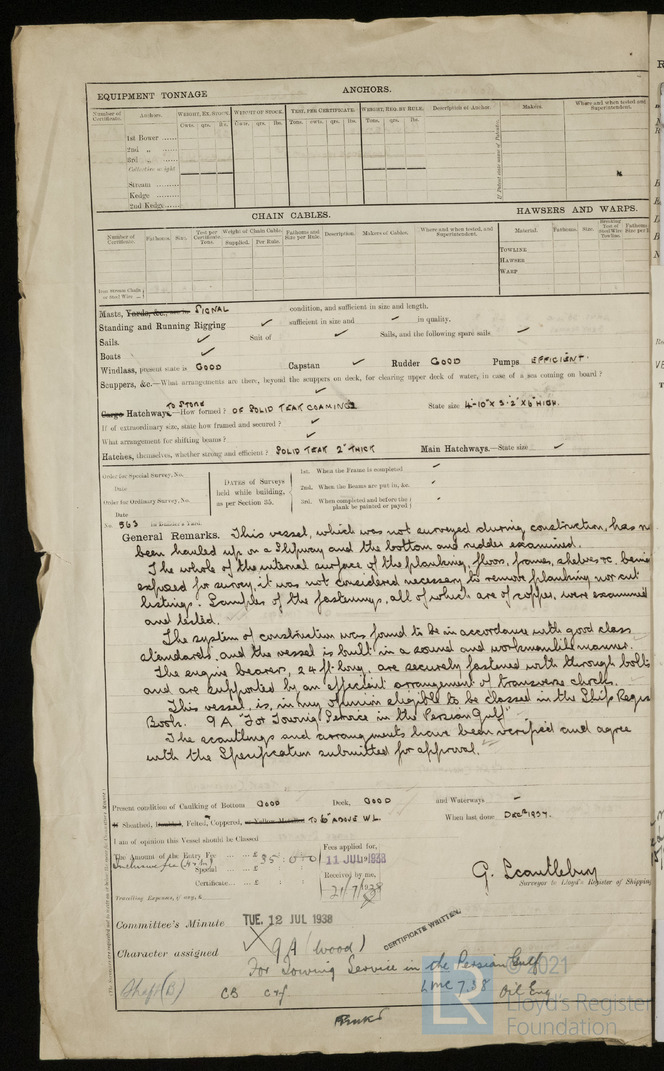 EQUIPMENT TONNAGE
ANCHORS.
Number of Certificate. Anchors. WEIGHT, EX. STOCK. WEIGHT OF STOCK. TEST, PER CERTIFICATE. WEIGHT, REQ. BY RULE. Description of Anchor. Makers. Where and when tested and Superintendent.
Cwts. qrs. lbs. Cwts. qrs. lbs. Tons. cwts. qrs. lbs. Tons. qrs. lbs.
1st Bower
2nd „
3rd „
Collective weight
Stream
Kedge
2nd Kedge
CHAIN CABLES.
HAWSERS AND WARPS.
Number of Certificate. Fathoms. Size. Test per Certificate. Tons. Weight of Chain Cable. Supplied. Per Rule. Fathoms and Size per Rule. Description. Makers of Cables. Where and when tested, and Superintendent. Material. Fathoms. Size. Breaking Test of Steel Wire Towline. Fathoms
TOWLINE
HAWSER
WARP
Iron Stream Chain or Steel Wire
Masts, Yards, &c., SIGNAL condition, and sufficient in size and length.
Standing and Running Rigging ✓ sufficient in size and ✓ in quality.
Sails. ✓ Suit of ✓ Sails, and the following spare sails ✓
Boats ✓
Windlass, present state is GOOD Capstan ✓ Rudder GOOD Pumps EFFICIENT.
Scuppers, &c.—What arrangements are there, beyond the scuppers on deck, for clearing upper deck of water, in case of a sea coming on board ?
✓
TO STORE
Cargo Hatchways,—How formed ? OF SOLID TEAK COAMINGS State size 4'-10" X 3'-2" X 6" HIGH.
If of extraordinary size, state how framed and secured ? ✓
What arrangement for shifting beams ? ✓
Hatches, themselves, whether strong and efficient ? SOLID TEAK 2" THICK Main Hatchways.—State size ✓
Order for Special Survey, No.
Date
Order for Ordinary Survey, No.
Date
No. 563 in Builder's Yard.
DATES of Surveys held while building, as per Section 35.
1st. When the Frame is completed ✓
2nd. When the Beams are put in, &c. ✓
3rd. When completed and before the plank be painted or payed ✓
General Remarks. This vessel, which was not surveyed during construction, has
been hauled up on a Slipway and the bottom and rudder examined.
The whole of the internal surface of the planking, floors, frames, shelves &c. being
exposed for survey, it was not considered necessary to remove planking nor cut
listings. Samples of the fastenings, all of which are of copper, were examined
and tested.
The system of construction was found to be in accordance with good class
standards, and the vessel is built in a sound and workmanlike manner.
The engine bearers, 24 ft. long, are securely fastened with through bolts
and are supported by an efficient arrangement of transverse chocks.
This vessel is, in my opinion eligible to be classed in the Ship Regis
Book. 9A "For Towing Service in the Persian Gulf".
The scantlings and arrangements have been verified and agree
with the Specification submitted for approval.
Present condition of Caulking of Bottom GOOD Deck, GOOD and Waterways —
Sheathed, Doubled, Felted, Coppered, TO 6" ABOVE W.L. When last done DECR 1937.
I am of opinion this Vessel should be Classed
The Amount of the Entry Fee £ 35 : 0 : 0
Special £
Certificate £ : :
Travelling Expenses, if any, £
Fees applied for,
11 JUL 1938
Received by me,
21/7/1938
G. Scantlebury
Surveyor to Lloyd's Register of Shipping
Committee's Minute TUE. 12 JUL 1938
CERTIFICATE WRITTEN.
Character assigned 9A (wood)
For Towing Service in the Persian Gulf
Shaft (B) CB
LMC 7.38 Oil Eng
© 2021
LR
Lloyd's Register
Foundation